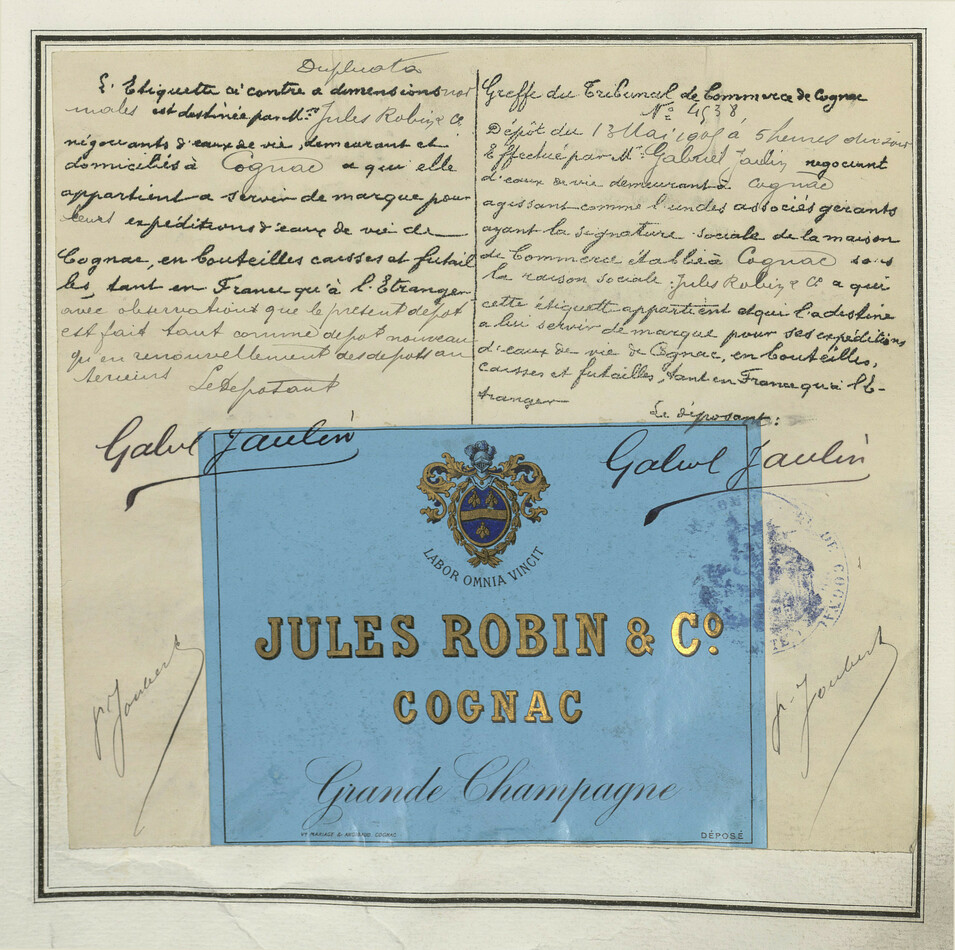 Duplicata
L'Etiquette ci contre a dimensions nor
males est destinée par Mrs Jules Robin & Co
négociants d'eaux de vie, demeurant et
domiciliés à Cognac a qui elle
appartient a servir de marque pour
leurs expéditions d'eaux de vie de
Cognac, en bouteilles caisses et futail
les, tant en France qu'à l'Etranger
avec observations que le present depot
est fait tant comme depot nouveau
qu'en renouvellement des depots an
terieurs Le Deposant
Gabriel Jaulin
Greffe du Tribunal de Commerce de Cognac
No 4538
Dépôt du 13 Mai 1905 à 5 heures du soir
Effectué par Mr Gabriel Jaulin negociant
d'eaux de vie demeurant à Cognac
agissant comme l'un des associés gerants
ayant la signature sociale de la maison
de Commerce etablie à Cognac sous
la raison sociale: Jules Robin & Co a qui
cette étiquette appartient et qui l'a destine
a lui servir de marque pour ses expéditions
d'eaux de vie de Cognac, en bouteilles,
caisses et futailles, tant en France qu'à l'E-
tranger
Le déposant:
Gabriel Jaulin
LABOR OMNIA VINCIT
JULES ROBIN & Co
COGNAC
Grande Champagne
COGNAC
DÉPOSÉ
DE COGNAC
Joubert
Joubert